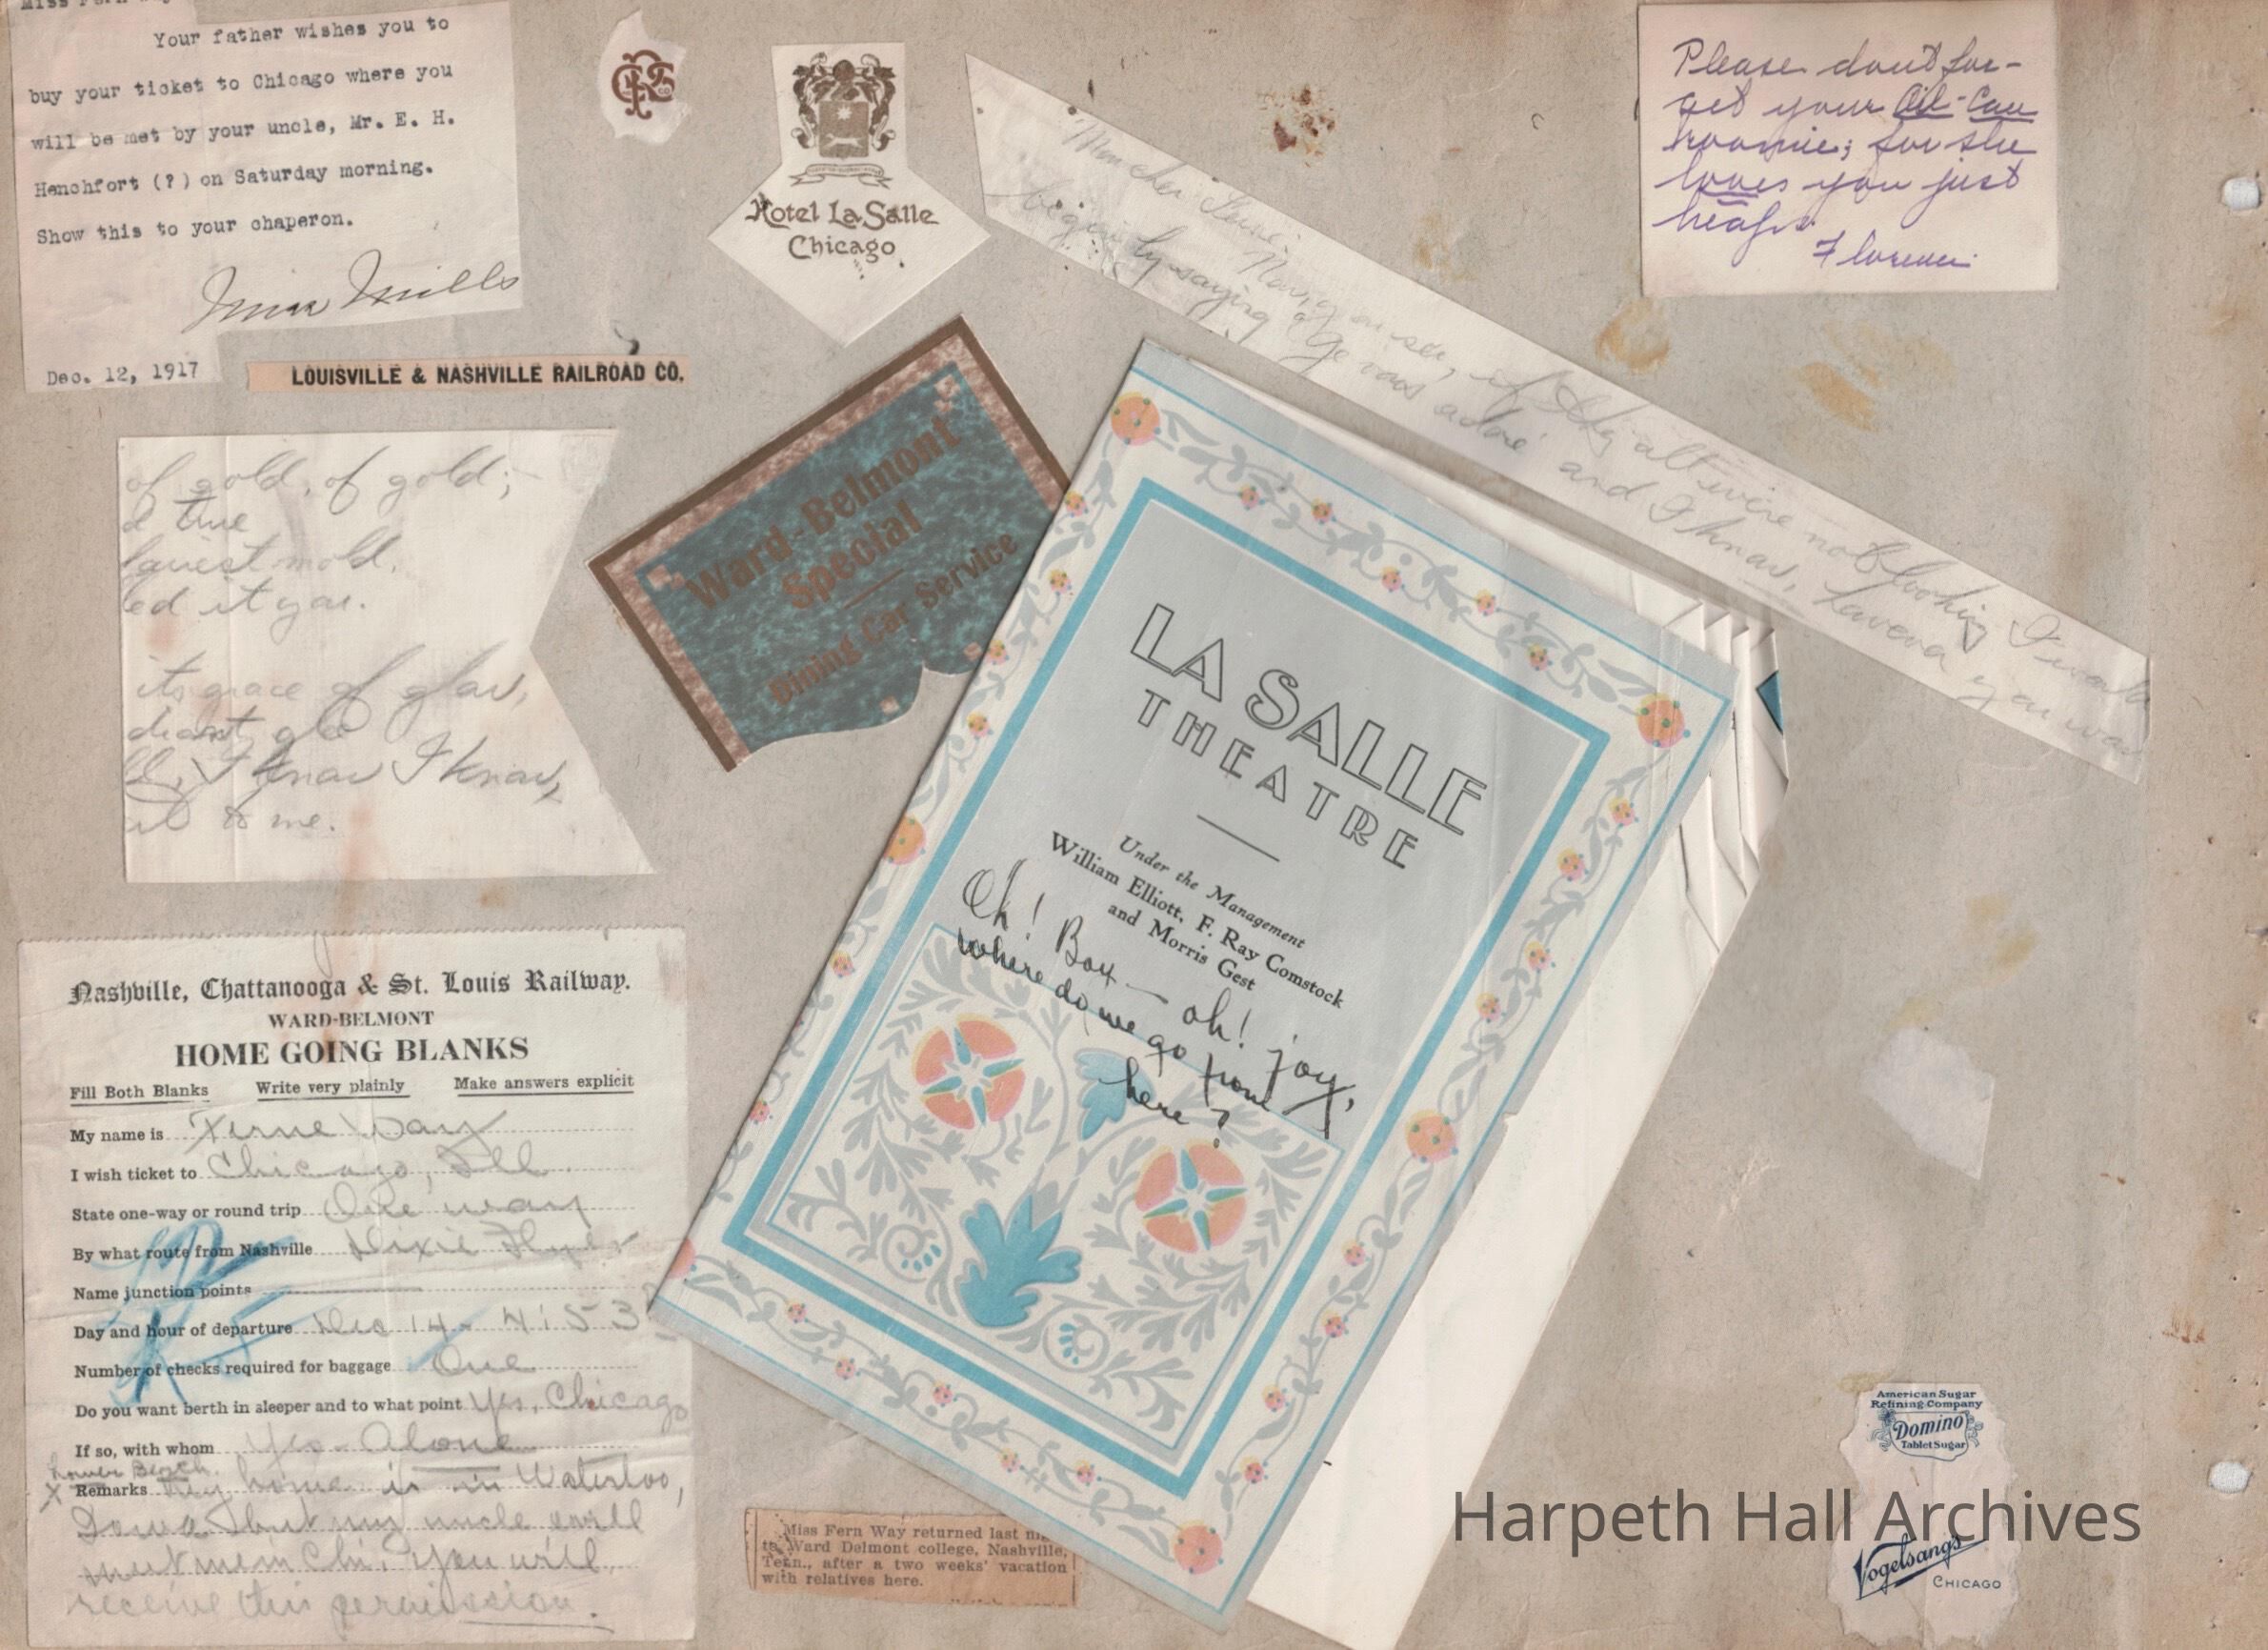 Miss Fern Way
Your father wishes you to
buy your ticket to Chicago where you
will be met by your uncle, Mr. E. H.
Henchfort (?) on Saturday morning.
Show this to your chaperon.
Miss Mills
Dec. 12, 1917
LOUISVILLE & NASHVILLE RAILROAD CO.
Hotel La Salle
Chicago
Please dont for-
get your Oil-Can
roomie; for she
loves you just
heaps.
Florence
Now, you see, if they all were not looking I would
begin by saying "Je vous adore" and I know, you
of gold, of gold;
d true
ed it
its grace of
I know I know,
to me.
Ward-Belmont
Special
Dining Car Service
LA SALLE
THEATRE
Under the Management
William Elliott, F. Ray Comstock
and Morris Gest
Oh! Boy — oh! joy,
where do we go from
here?
Nashville, Chattanooga & St. Louis Railway.
WARD-BELMONT
HOME GOING BLANKS
Fill Both Blanks Write very plainly Make answers explicit
My name is Ferne Way
I wish ticket to Chicago, Ill.
State one-way or round trip One way
By what route from Nashville Dixie Flyer
Name junction points
Day and hour of departure Dec 14 - 4:53
Number of checks required for baggage One
Do you want berth in sleeper and to what point Yes, Chicago
If so, with whom Yes - Alone
Lower Berth.
X Remarks My home is in Waterloo,
Iowa but my uncle will
meet me in Chi. You will
receive this permission.
Miss Fern Way returned last
to Ward Delmont college, Nashville,
Tenn., after a two weeks' vacation
with relatives here.
American Sugar
Refining Company
Domino
Tablet Sugar
Harpeth Hall Archives
Vogelsang's
CHICAGO